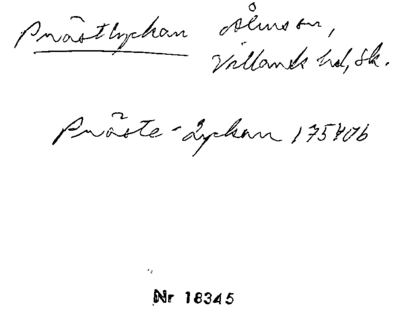 Prästlyckan Åhus sn,
Villands hd, Sk.
Präste-Lyckan 1754
Nr 18345